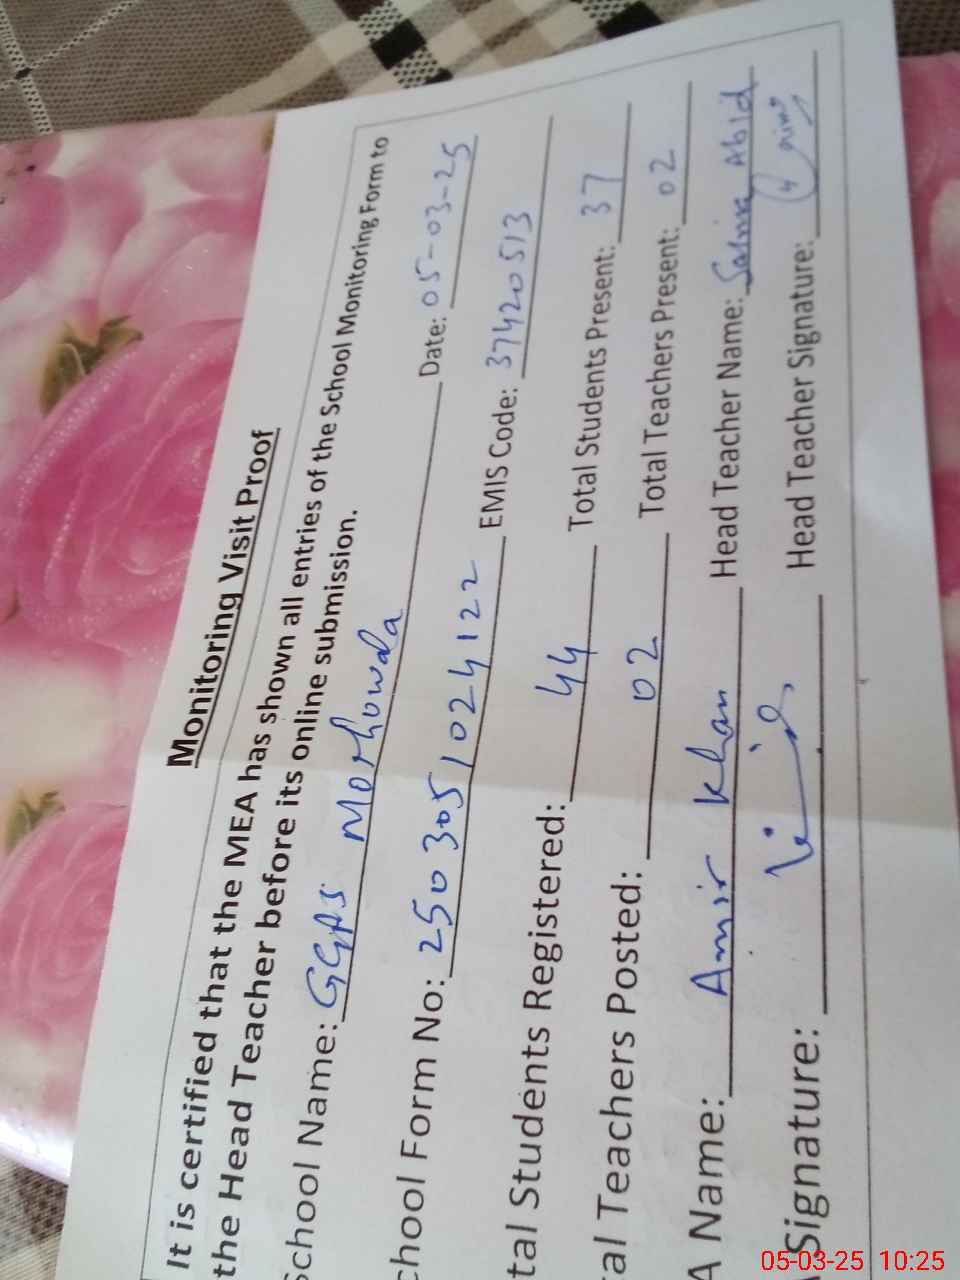 Monitoring Visit Proof
It is certified that the MEA has shown all entries of the School Monitoring Form to
the Head Teacher before its online submission.
School Name: GGPS Morhowala Date: 05-03-25
chool Form No: 2503051024122 EMIS Code: 37420513
tal Students Registered: 44 Total Students Present: 37
al Teachers Posted: 02 Total Teachers Present: 02
A Name: Amir Khan Head Teacher Name: Abid
Signature: Head Teacher Signature:
05-03-25 10:25